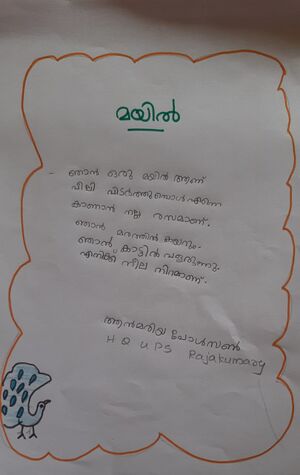 മയിൽ
ഞാൻ ഒരു മയിൽ ആണ്
പീലി വിടർത്തുമ്പോൾ എന്നെ
കാണാൻ നല്ല രസമാണ്.
ഞാൻ മരത്തിൽ കയറും.
ഞാൻ കാട്ടിൽ വളരുന്നു.
എനിക്ക് നീല നിറമാണ്.
ആൻമരിയ പോൾസൺ
H Q UPS Rajakumary